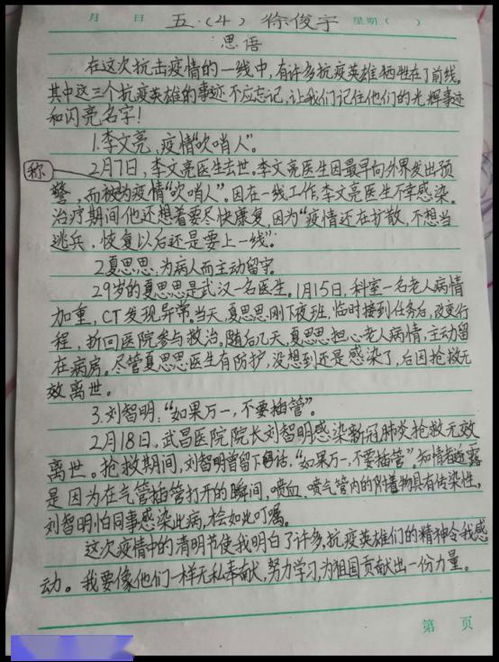 月 日 五.(4) 徐俊宇 星期( )
思语
在这次抗击疫情的一线中,有许多抗疫英雄牺牲在了前线,
其中这三个抗疫英雄的事迹不应忘记,让我们记住他们的光辉事迹
和闪亮名字!
1.李文亮,疫情“吹哨人”。
称
2月7日,李文亮医生去世。李文亮医生因最早向外界发出预
警,而被为疫情“吹哨人”。因在一线工作,李文亮医生不幸感染。
治疗期间他还想着要尽快康复,因为“疫情还在扩散,不想当
逃兵,恢复以后还是要上一线”。
2.夏思思,为病人而主动留守。
29岁的夏思思是武汉一名医生。1月15日,科室一名老人病情
加重,CT发现异常。当天,夏思思刚下夜班,临时接到任务后,改变行
程,折回医院参与救治。随后几天,夏思思担心老人病情,主动留
在病房。尽管夏思思医生有防护,没想到还是感染了,后因抢救无
效离世。
3.刘智明:“如果万一,不要插管”。
2月18日,武昌医院院长刘智明感染新冠肺炎抢救无效
离世。抢救期间,刘智明曾留下话:“如果万一,不要插管”。知情
是因为在气管插管打开的瞬间,喷血、喷气管内的附着物具有传染性,
刘智明怕同事感染此病,才会如此叮嘱。
这次疫情中的清明节使我明白了许多,抗疫英雄们的精神令我感
动。我要像他们一样无私奉献,努力学习,为祖国贡献出一份力量。
第 页